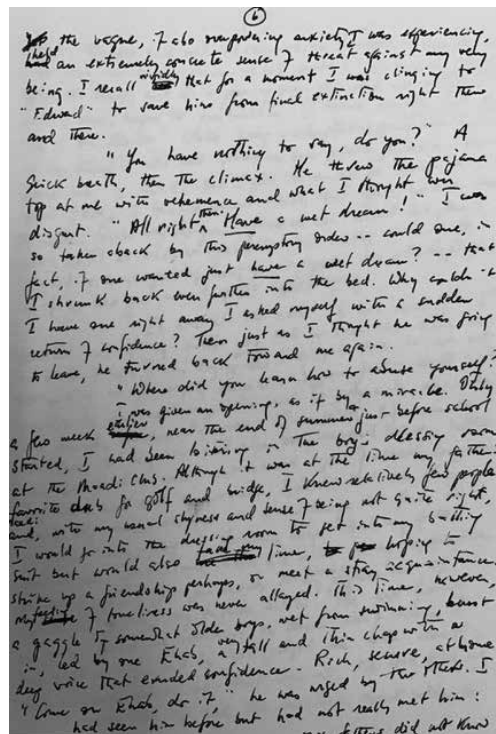 6
the vague, if also overpowering anxiety I was experiencing,
held an extremely concrete sense of threat against my very
being. I recall vividly that for a moment I was clinging to
"Edward" to save him from final extinction right there
and there.
"You have nothing to say, do you?" A
quick breath, then the climax. He threw the pajama
top at me with vehemence and what I thought was
disgust. "All right then. Have a wet dream!" I was
so taken aback by this peremptory order -- could one, in
fact, if one wanted just have a wet dream? -- that
I shrunk back even further into the bed. Why couldn't
I have one right away I asked myself with a sudden
return of confidence? Then just as I thought he was going
to leave, he turned back toward me again.
"Where did you learn how to abuse yourself?"
I was given an opening, as if by a miracle. Only
a few week earlier, near the end of summer just before school
started, I had been in the boy's dressing room
at the Maadi Club. Although it was at the time my father's
favorite club for golf and bridge, I knew relatively few people
and, with my usual shyness and sense of being not quite right,
I would go into the dressing room to get into my bathing
suit but would also time, hoping to
strike up a friendship perhaps, or meet a stray acquaintance.
My feeling of loneliness was never allayed. This time, however,
a gaggle of somewhat older boys, wet from swimming, burst
in, led by one Ehab, a very tall and thin chap with a
deep voice that exuded confidence. Rich, secure, at home
"Come on Ehab, do it," he was urged by the others. I
had seen him before but had not really met him:
did not know